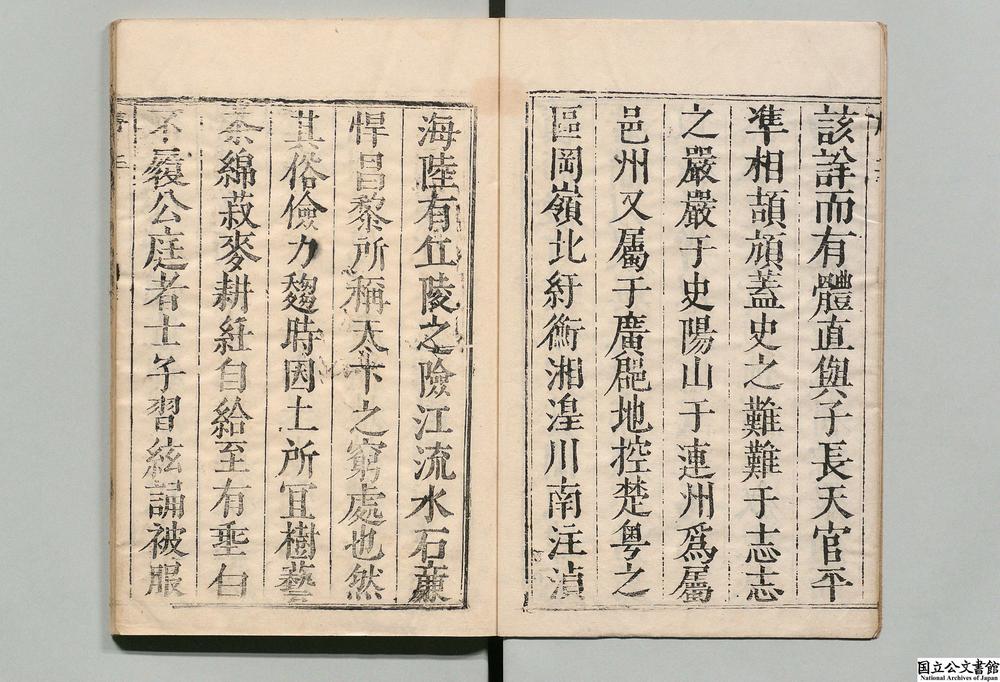 該詳而有體直與子長天官平
準相頡頏蓋史之難難于志志
之嚴嚴于史陽山于連州爲屬
邑州又屬于廣郡地控楚粤之
區岡嶺北紆衡湘湟川南注湞
海陸有丘陵之險江流水石廉
悍昌黎所稱天下之窮處也然
其俗儉力趨時因土所宜樹藝
枲綿菽麥耕紅自給至有垂白
不履公庭者士子習絃誦被服
国立公文書館
National Archives of Japan